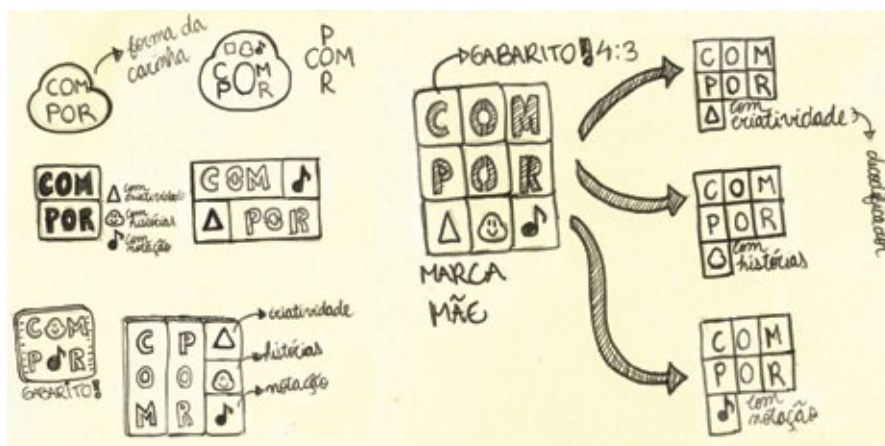 forma da
carinha
COM
POR
C O M
P R
P
COM
R
COM
POR
com
criatividade
com
histórias
com
notação
COM
POR
COM
P R
GABARITO!
C P
O O
M R
criatividade
histórias
notação
GABARITO! 4:3
C O M
P O R
MARCA
MÃE
C O M
P O R
com
criatividade
decodificador
C O M
P O R
com
histórias
C O M
P O R
com
notação